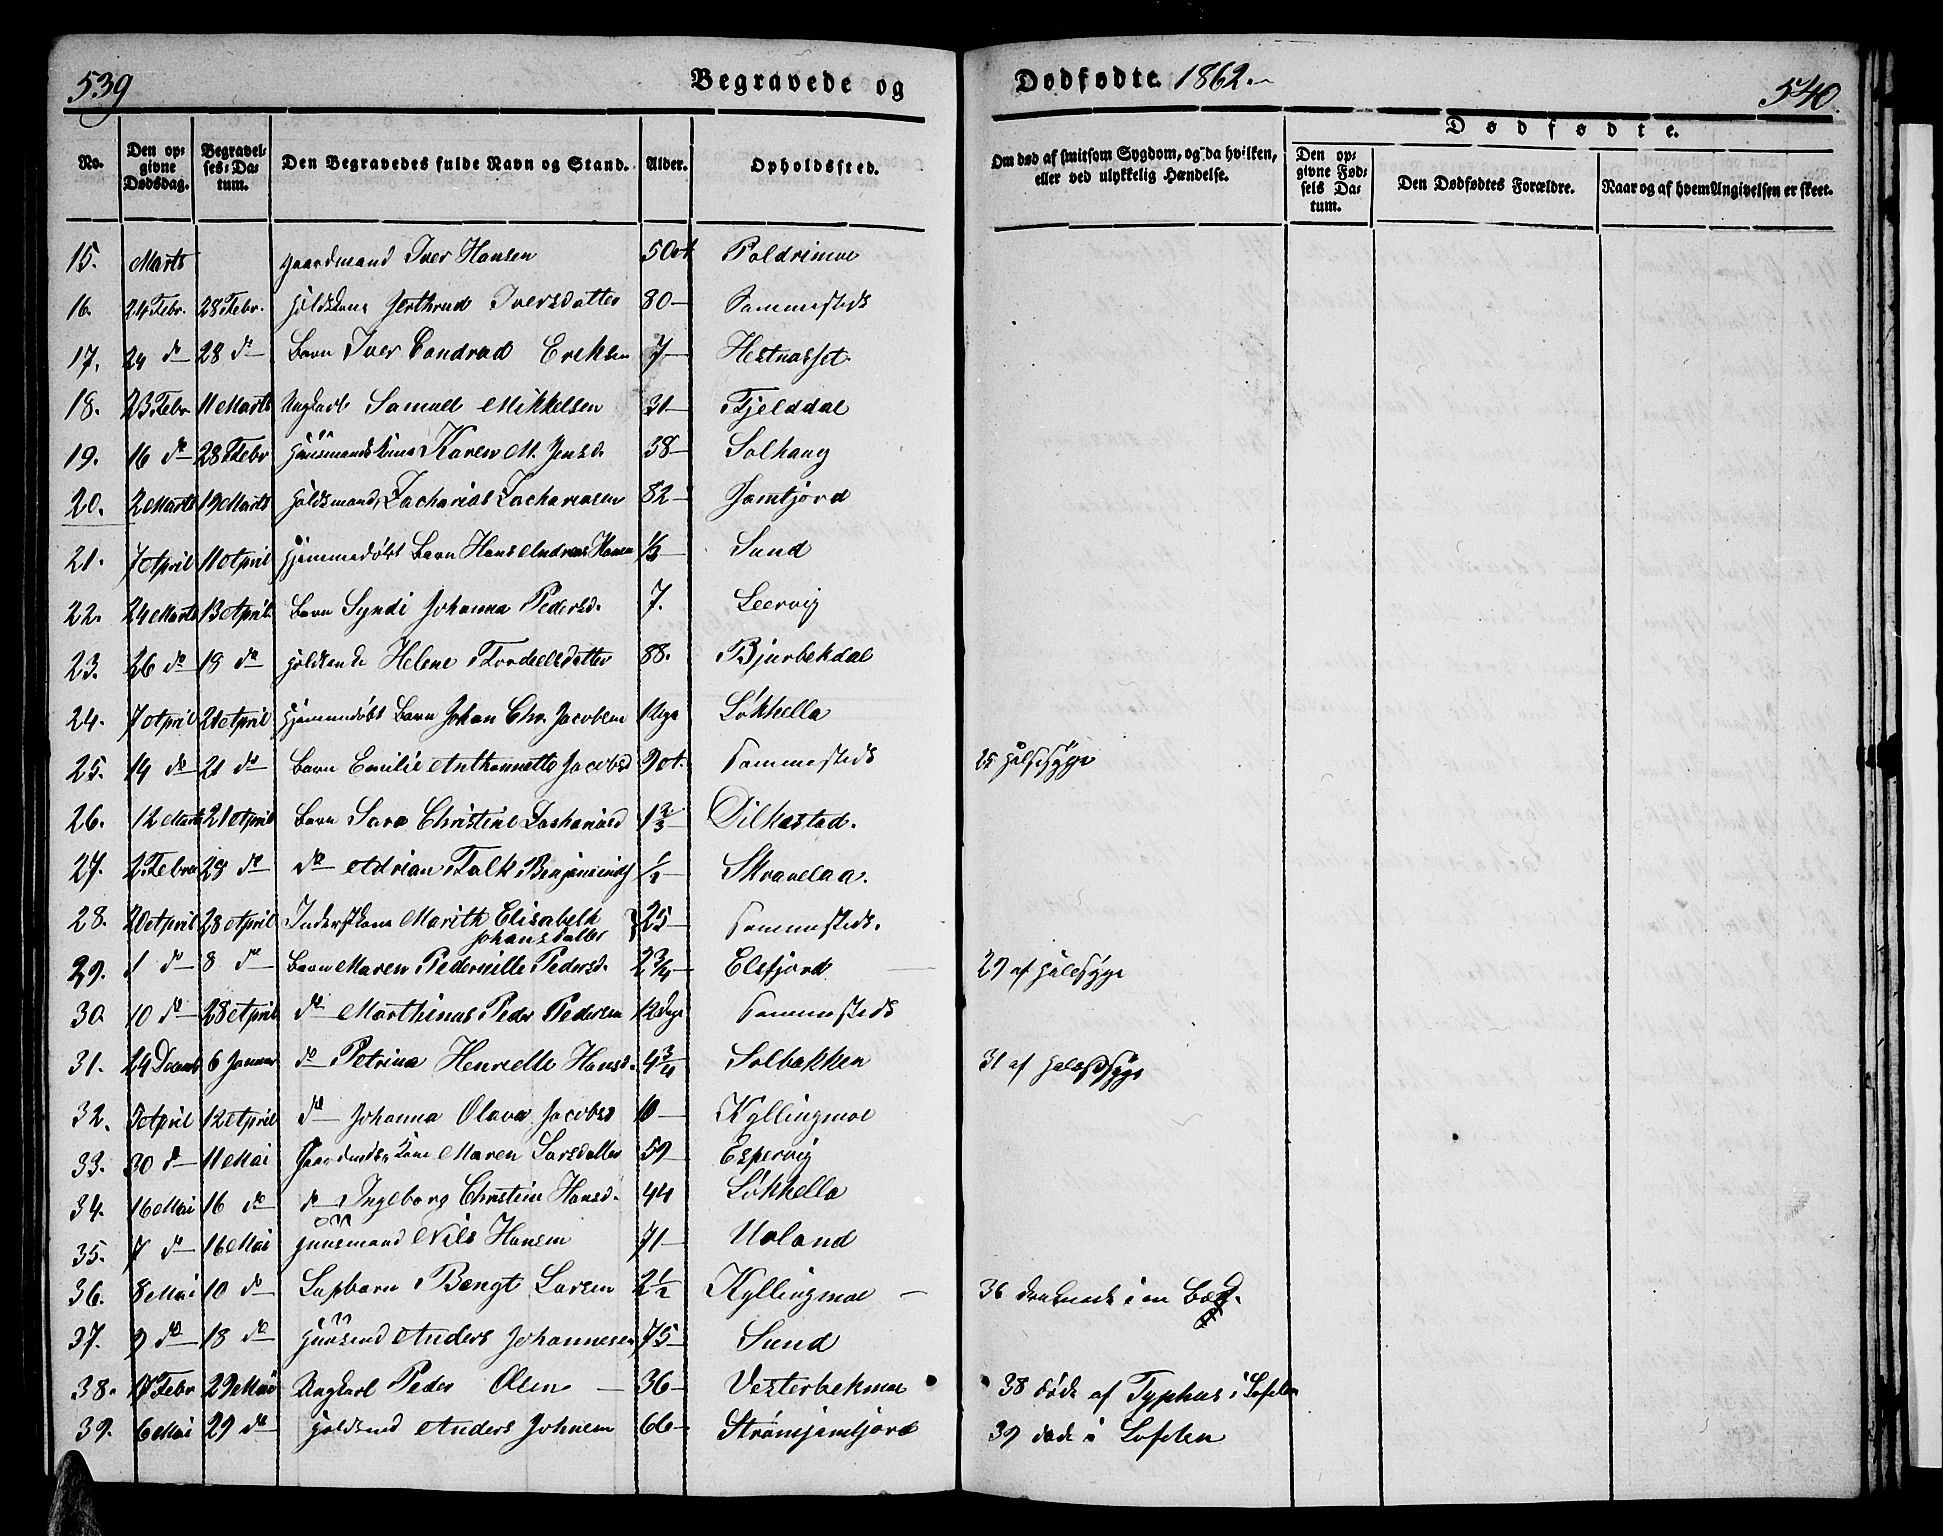 539
Begravede og
Dødfødte 1862.
540.
No.
Den opgivne Dødsdag.
Begravelses-Datum.
Den Begravedes fulde Navn og Stand.
Alder.
Opholdssted.
Om død af smitsom Sygdom, og da hvilken, eller ved ulykkelig Hændelse.
Dødfødte.
Den opgivne Fødsels Datum.
Den Dødfødtes Forældre.
Naar og af hvem Angivelsen er skeet.
15. Marts Gaardmand Iver Hansen 50 Poldrimoe
16. 24 Febr. 28 Febr. Jerthrud Iversdatter 80 Sammesteds
17. 24 do 28 do Barn Iver Condrad Eriksen 7 Hestnæsset
18. 23 Febr 11 Marts Ungkarl Samuel Mikkelsen 31 Fjelddal
19. 16 do 28 Febr Huusmandskone Karen M. Jensd. 58 Solhaug
20. 2 Marts 19 Marts Zacharias Zachariasen 82 Jamtjord
21. 7 April 11 April Hjemmedøbt Barn Hans Andreas Hansen Sund
22. 24 Marts 13 April Barn Syndi Johanna Pedersd. 7. Leervig
23. 26 do 19 do Helene Tordeelsdatter 88. Bjurbekdal
24. 7 April 21 April Hjemmedøbt Barn Johan Chr. Jacobsen Løkhella
25. 14 do 21 do Barn Emilie Anthonnette Jacobsd Sammesteds 25 Halssyge
26. 12 Marts 21 April Barn Sara Christine Zachariasd 1 2/3 Silkestad.
27. 2 Febru 29 do do Adrian Falk 1/2 Skravelaa.
28. 20 April 28 April Marith Elisabeth Johansdatter 25 Sammesteds.
29. 1 do 8 do Barn Maren Pedernille Pedersd. 2 3/4 Elvfjord 29 af Halssyge
30. 10 do 28 April do Marthinus Peder Pedersen 12 Dage Sammesteds
31. 24 Decemb 6 Januar do Petrina Henrielle Hansd. 4 3/4 Solbakken 31 af Halssyge
32. April 12 April do Johanna Olava Jacobsd 10 Kyllingmoe
33. 30 do 11 Mai Kone Maren Larsdatter 59 Espervig
34. 16 Mai 16 do do Ingeborg Christin Hansd. 44 Løkhella
35. 7 do 16 Mai Huusmand Nils Hansen 71
36. 8 Mai 10 do Lapbarn Bengt Larsen 2 1/2 Kyllingmoe 36 druknede i en Bæk.
37. 9 do 18 do Anders Johannesen 75 Sund
38. Febr 29 Mai Ungkarl Peder Olsen 36 Vesterbekmoe 38 døde af Typhus i Lofoten
39. 6 Mai 29 do Anders Johnsen 66 39 døde i Lofoten